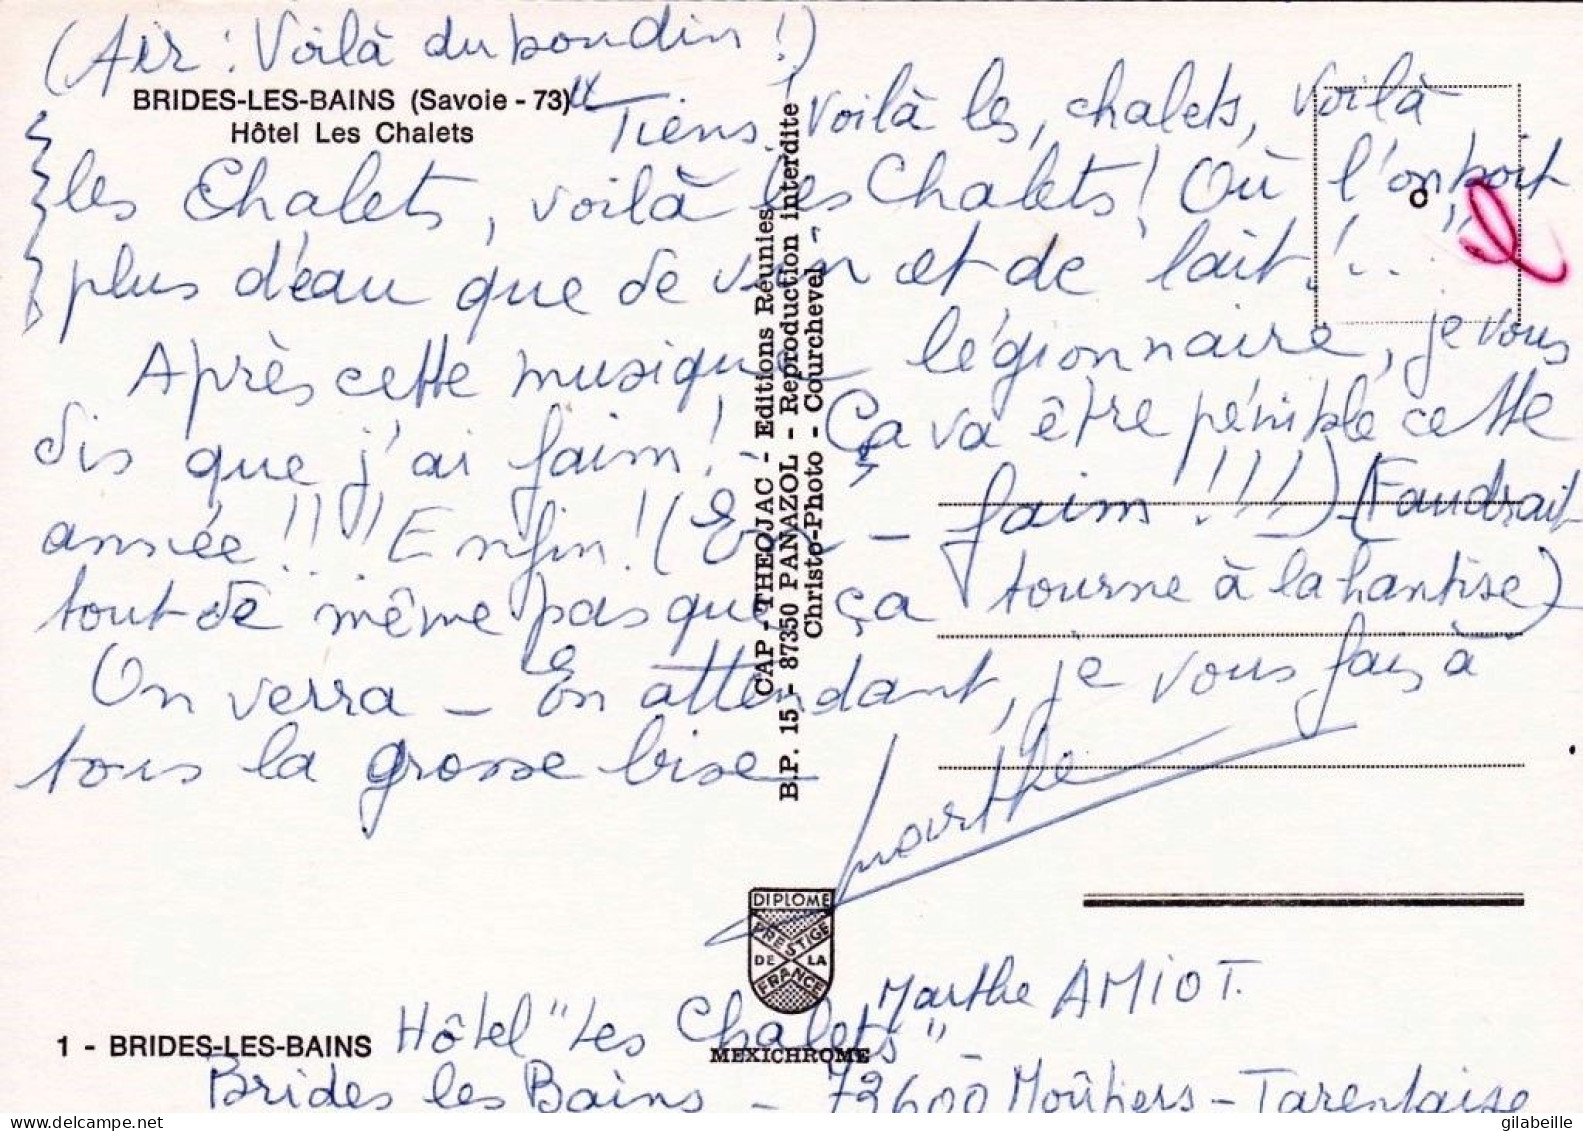 (Air : Voilà du boudin !)
BRIDES-LES-BAINS (Savoie - 73)
Hôtel Les Chalets
"Tiens, voilà les chalets, voilà
les Chalets, voilà les Chalets ! Où l'on boit
plus d'eau que de vin et de lait !... "
Après cette musique légionnaire, je vous
dis que j'ai faim ! - Ça va être pénible cette
année !! !! Enfin ! ( - faim !!!) (Faudrait
tout de même pas que ça tourne à la hantise)
On verra - En attendant, je vous fais à
tous la grosse bise
Marthe
CAP - THEOJAC - Editions Réunies
B.P. 15 - 87350 PANAZOL - Reproduction interdite
Christo-Photo - Courchevel
DIPLOME
PRESTIGE
DE LA
FRANCE
MEXICHROME
Marthe AMIOT.
1 - BRIDES-LES-BAINS
Hôtel "Les Chalets" -
Brides les Bains - 73600 Moûtiers - Tarentaise
gilabeille